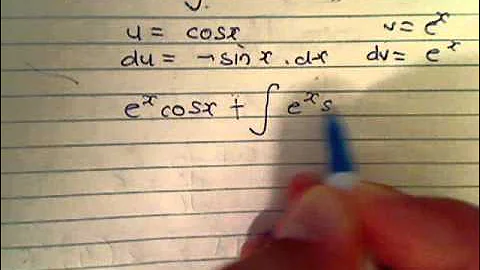 u = cosx v = e^x
du = -sinx . dx dv = e^x
e^x cosx + ∫ e^x s